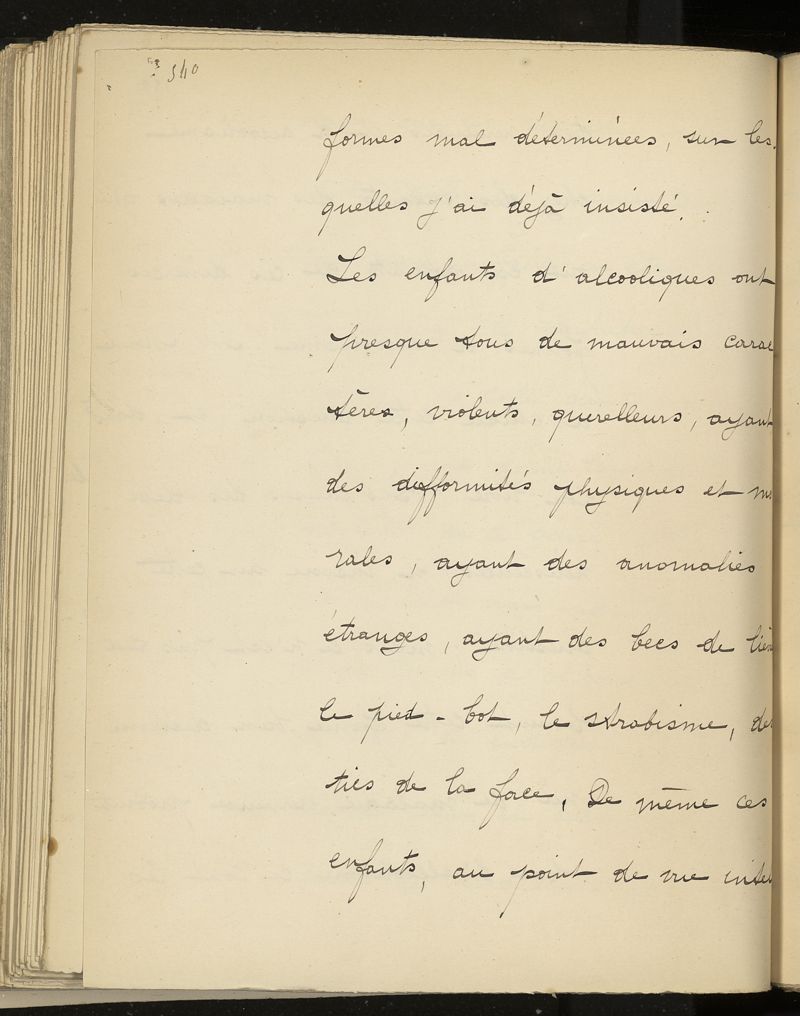 540
formes mal déterminées, sur les-
quelles j'ai déjà insisté.
Les enfants d'alcooliques ont
presque tous de mauvais carac
tères, violents, querelleurs, ayant
des difformités physiques et mo
rales, ayant des anomalies
étranges, ayant des becs de lièv
le pied-bot, le strabisme, des
tics de la face. De même ces
enfants, au point de vue intel